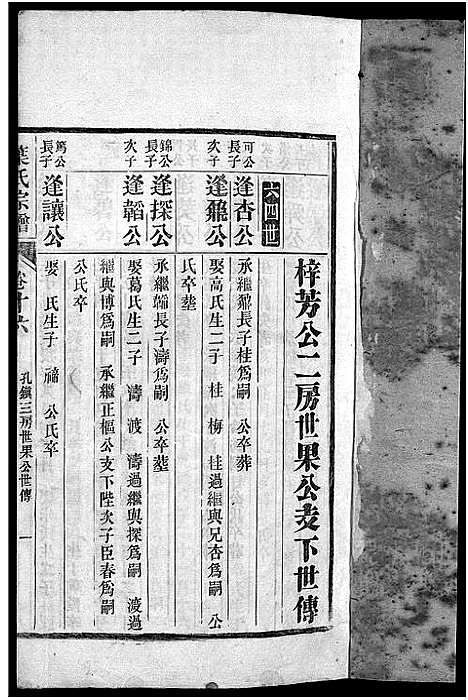 梓芳公二房世果公支下世傳
六四世
可公
長子
逢杏公
承繼鵬長子桂爲嗣 公卒葬
次子
逢鵬公
娶高氏生二子 桂 梅 桂過繼與兄杏爲嗣 公
氏卒塟
錦公
長子
逢探公
承繼韜長子濤爲嗣 公卒塟
次子
逢韜公
娶葛氏生二子 濤 渡 濤過繼與探爲嗣 渡過
繼與博爲嗣 承繼正樞公支下陞次子臣春爲嗣
公氏卒
篤公
長子
逢讓公
娶 氏生子 公氏卒
葉氏宗譜
卷十六
孔鎭三房世果公世傳
一